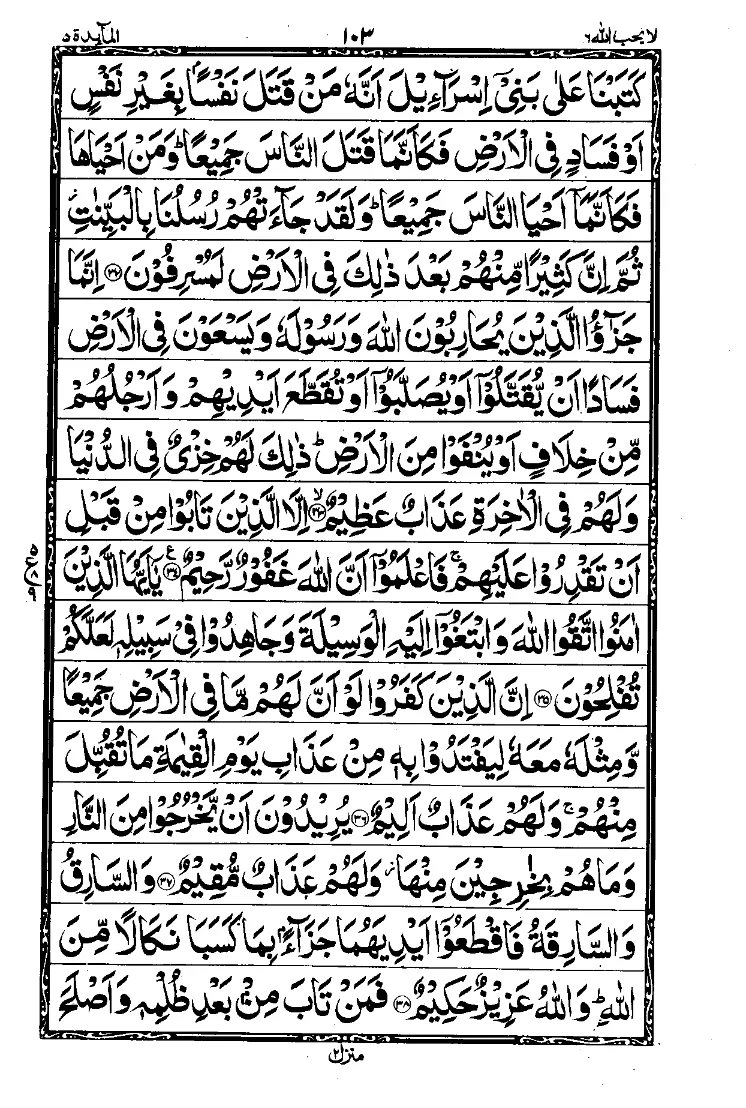 لا يحب الله ٦ ١٠٣ المآيدة ٥
كَتَبْنَا عَلٰى بَنِىْٓ اِسْرَآءِيْلَ اَنَّهٗ مَنْ قَتَلَ نَفْسًاۢ بِغَيْرِ نَفْسٍ
اَوْ فَسَادٍ فِى الْاَرْضِ فَكَاَنَّمَا قَتَلَ النَّاسَ جَمِيْعًاؕ وَمَنْ اَحْيَاهَا
فَكَاَنَّمَاۤ اَحْيَا النَّاسَ جَمِيْعًاؕ وَلَقَدْ جَآءَتْهُمْ رُسُلُنَا بِالْبَيِّنٰتِ
ثُمَّ اِنَّ كَثِيْرًا مِّنْهُمْ بَعْدَ ذٰلِكَ فِى الْاَرْضِ لَمُسْرِفُوْنَ ﴿٣٢﴾ اِنَّمَا
جَزٰٓؤُا الَّذِيْنَ يُحَارِبُوْنَ اللّٰهَ وَرَسُوْلَهٗ وَيَسْعَوْنَ فِى الْاَرْضِ
فَسَادًا اَنْ يُّقَتَّلُوْۤا اَوْ يُصَلَّبُوْۤا اَوْ تُقَطَّعَ اَيْدِيْهِمْ وَاَرْجُلُهُمْ
مِّنْ خِلَافٍ اَوْ يُنْفَوْا مِنَ الْاَرْضِؕ ذٰلِكَ لَهُمْ خِزْىٌ فِى الدُّنْيَا
وَلَهُمْ فِى الْاٰخِرَةِ عَذَابٌ عَظِيْمٌۙ ﴿٣٣﴾ اِلَّا الَّذِيْنَ تَابُوْا مِنْ قَبْلِ
اَنْ تَقْدِرُوْا عَلَيْهِمْۚ فَاعْلَمُوْۤا اَنَّ اللّٰهَ غَفُوْرٌ رَّحِيْمٌ ﴿٣٤﴾ يٰۤاَيُّهَا الَّذِيْنَ
اٰمَنُوا اتَّقُوا اللّٰهَ وَابْتَغُوْۤا اِلَيْهِ الْوَسِيْلَةَ وَجَاهِدُوْا فِىْ سَبِيْلِهٖ لَعَلَّكُمْ
تُفْلِحُوْنَ ﴿٣٥﴾ اِنَّ الَّذِيْنَ كَفَرُوْا لَوْ اَنَّ لَهُمْ مَّا فِى الْاَرْضِ جَمِيْعًا
وَّمِثْلَهٗ مَعَهٗ لِيَفْتَدُوْا بِهٖ مِنْ عَذَابِ يَوْمِ الْقِيٰمَةِ مَا تُقُبِّلَ
مِنْهُمْۚ وَلَهُمْ عَذَابٌ اَلِيْمٌ ﴿٣٦﴾ يُرِيْدُوْنَ اَنْ يَّخْرُجُوْا مِنَ النَّارِ
وَمَا هُمْ بِخٰرِجِيْنَ مِنْهَا وَلَهُمْ عَذَابٌ مُّقِيْمٌ ﴿٣٧﴾ وَالسَّارِقُ
وَالسَّارِقَةُ فَاقْطَعُوْۤا اَيْدِيَهُمَا جَزَآءًۢ بِمَا كَسَبَا نَكَالًا مِّنَ
اللّٰهِؕ وَاللّٰهُ عَزِيْزٌ حَكِيْمٌ ﴿٣٨﴾ فَمَنْ تَابَ مِنْۢ بَعْدِ ظُلْمِهٖ وَاَصْلَحَ
منزل ٢